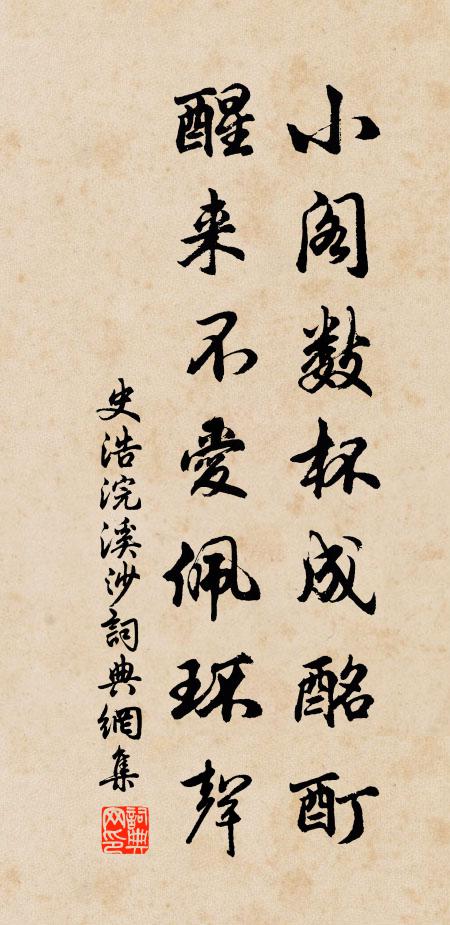 小阁数杯成酩酊
醒来不爱佩环声
史浩浣溪沙詞典網集
詞典网印